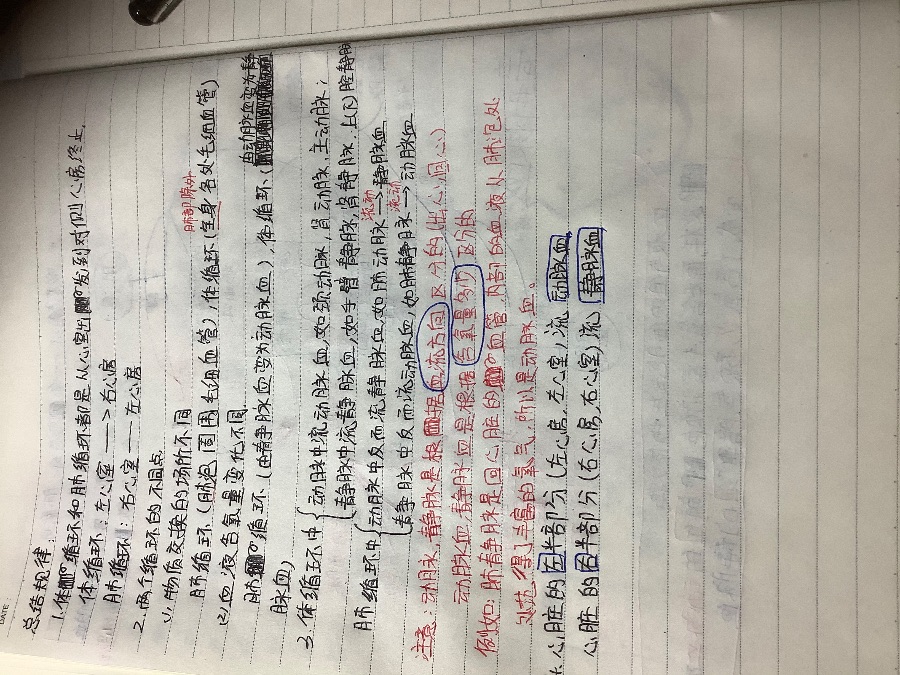 DATE:
总结规律:
1.体循环和肺循环都是从心室出发到对侧心房终止.
体循环:左心室——>右心房
肺循环:右心室——左心房
2.两个循环的不同点
(1).物质交换的场所不同
肺部除外
肺循环(肺泡周围毛细血管),体循环(全身各处毛细血管)
(2)血液含氧量变化不同.
肺循环(由静脉血变为动脉血),体循环(由动脉血变为静
脉血)
3.体循环中{动脉中流动脉血,如颈动脉,肾动脉,主动脉;
静脉中流静脉血,如手臂静脉,肾静脉,上(下)腔静脉
肺循环中{动脉中反而流静脉血,如肺动脉 流动→静脉血
静脉中反而流动脉血,如肺静脉 流动→动脉血
注意:动脉、静脉是根据血流方向区分的(出心、回心)
动脉血、静脉血是根据含氧量多少区分的
例如:肺静脉是回心脏的血管,内部的血液从肺泡处
获得了丰富的氧气,所以是动脉血。
心脏的左半部分(左心房,左心室),流动脉血,
心脏的右半部分(右心房,右心室),流静脉血